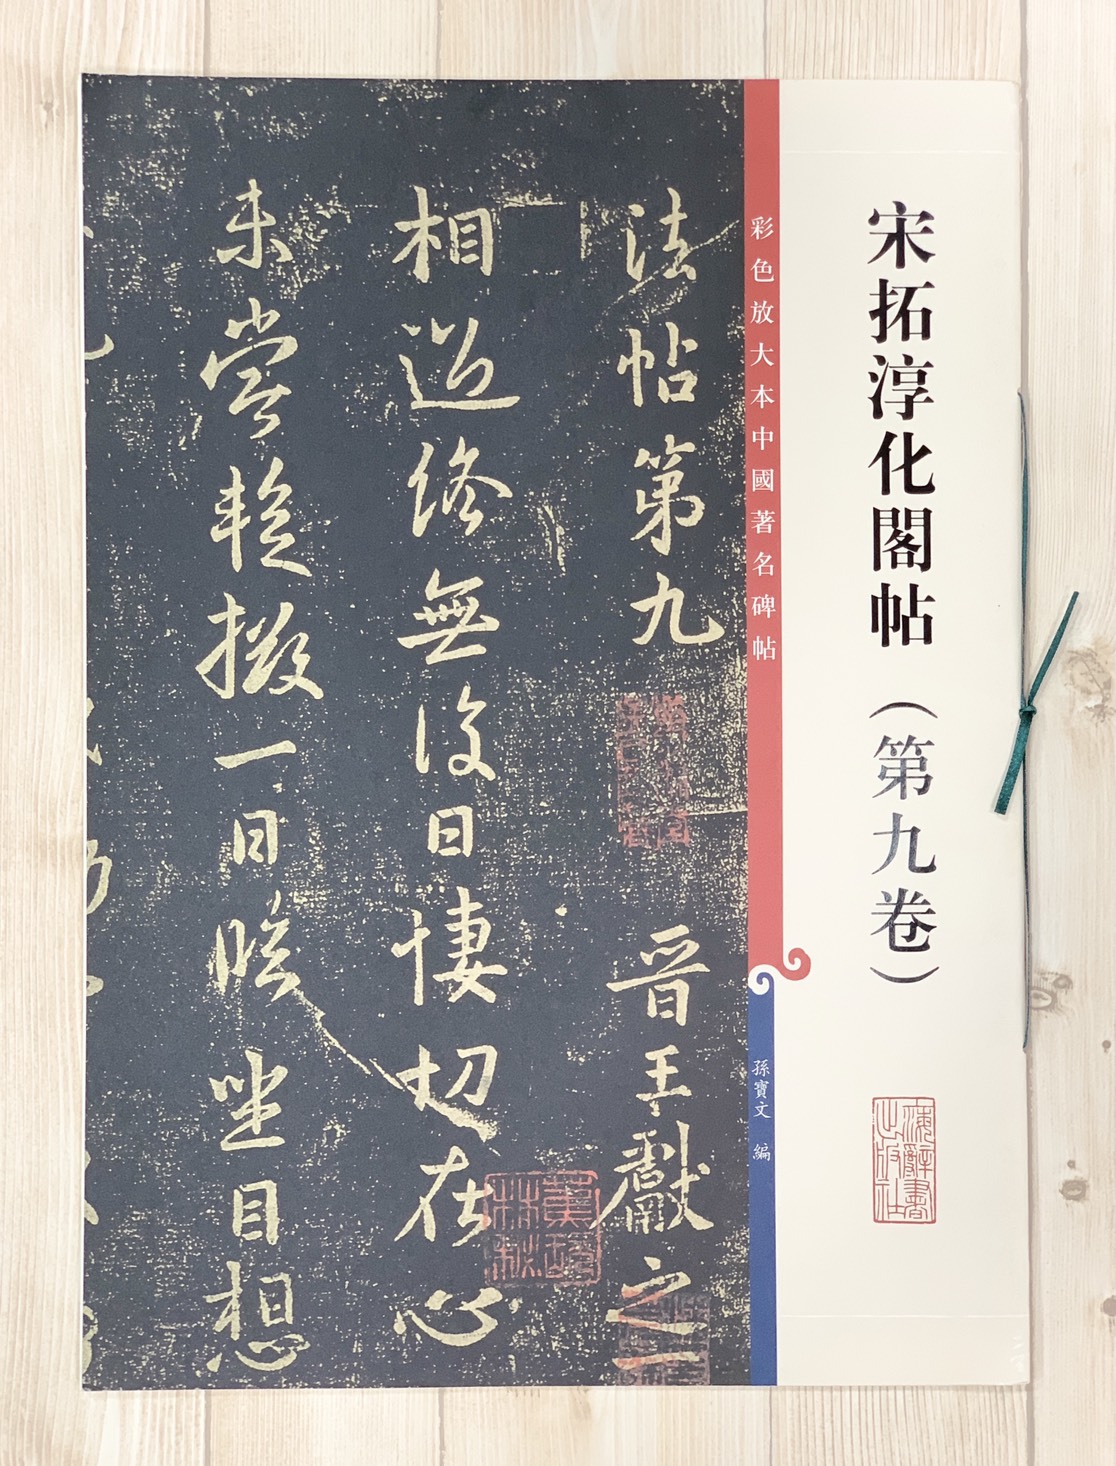 宋拓淳化閣帖（第九卷）
海辭書
出版社
彩色放大本中國著名碑帖
孫寶文 編
法帖第九 晋王獻之一
相過終無復日悽切在心
未嘗暫掇一日臨坐目想